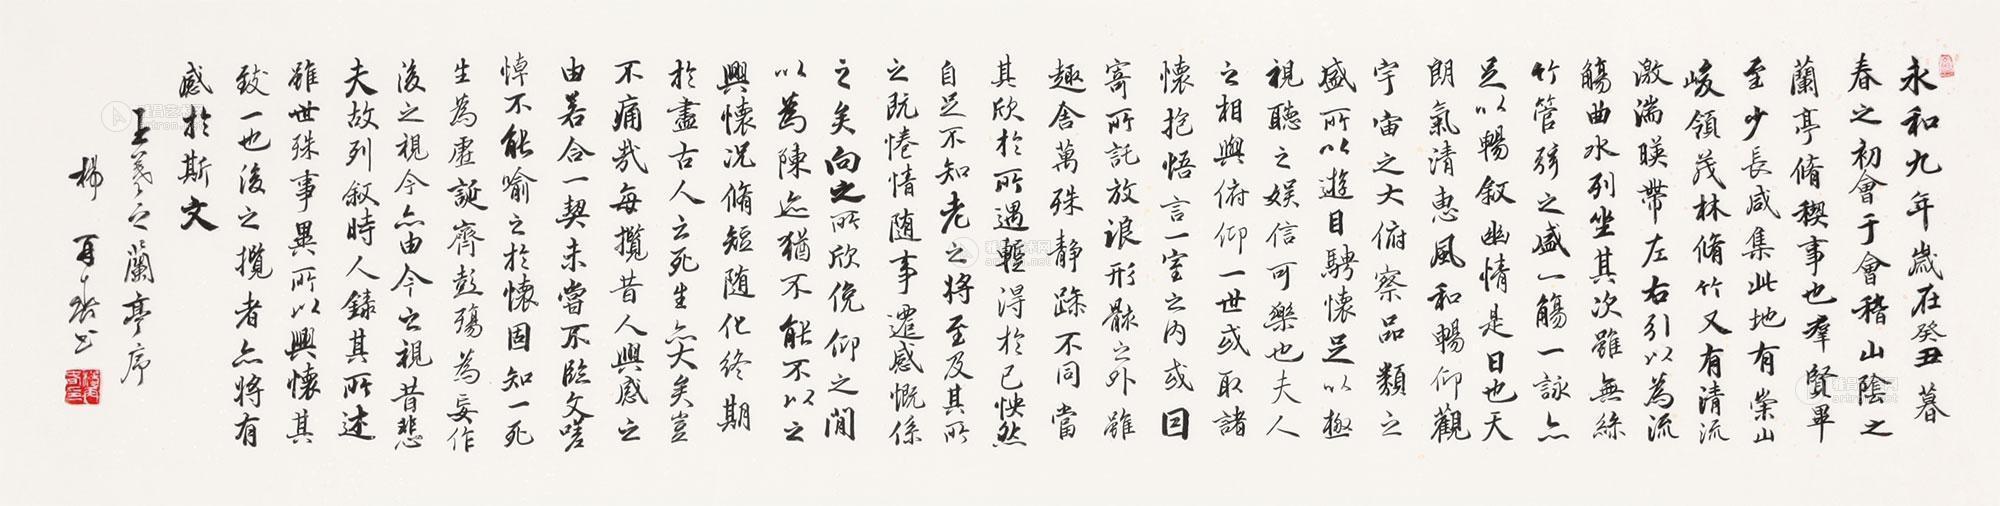 永和九年歲在癸丑暮
春之初會于會稽山陰之
蘭亭脩稧事也羣賢畢
至少長咸集此地有崇山
峻領茂林脩竹又有清流
激湍暎帶左右引以為流
觴曲水列坐其次雖無絲
竹管弦之盛一觴一詠亦
足以暢敘幽情是日也天
朗氣清惠風和暢仰觀
宇宙之大俯察品類之
盛所以遊目騁懷足以極
視聽之娛信可樂也夫人
之相與俯仰一世或取諸
懷抱悟言一室之內或因
寄所託放浪形骸之外雖
趣舍萬殊靜躁不同當
其欣於所遇暫得於己怏然
自足不知老之將至及其所
之既惓情隨事遷感慨係
之矣向之所欣俛仰之閒
以為陳迹猶不能不以之
興懷況脩短隨化終期
於盡古人云死生亦大矣豈
不痛哉每攬昔人興感之
由若合一契未嘗不臨文嗟
悼不能喻之於懷固知一死
生為虛誕齊彭殤為妄作
後之視今亦由今之視昔悲
夫故列敘時人錄其所述
雖世殊事異所以興懷其
致一也後之攬者亦將有
感於斯文
王羲之蘭亭序
楊再春書